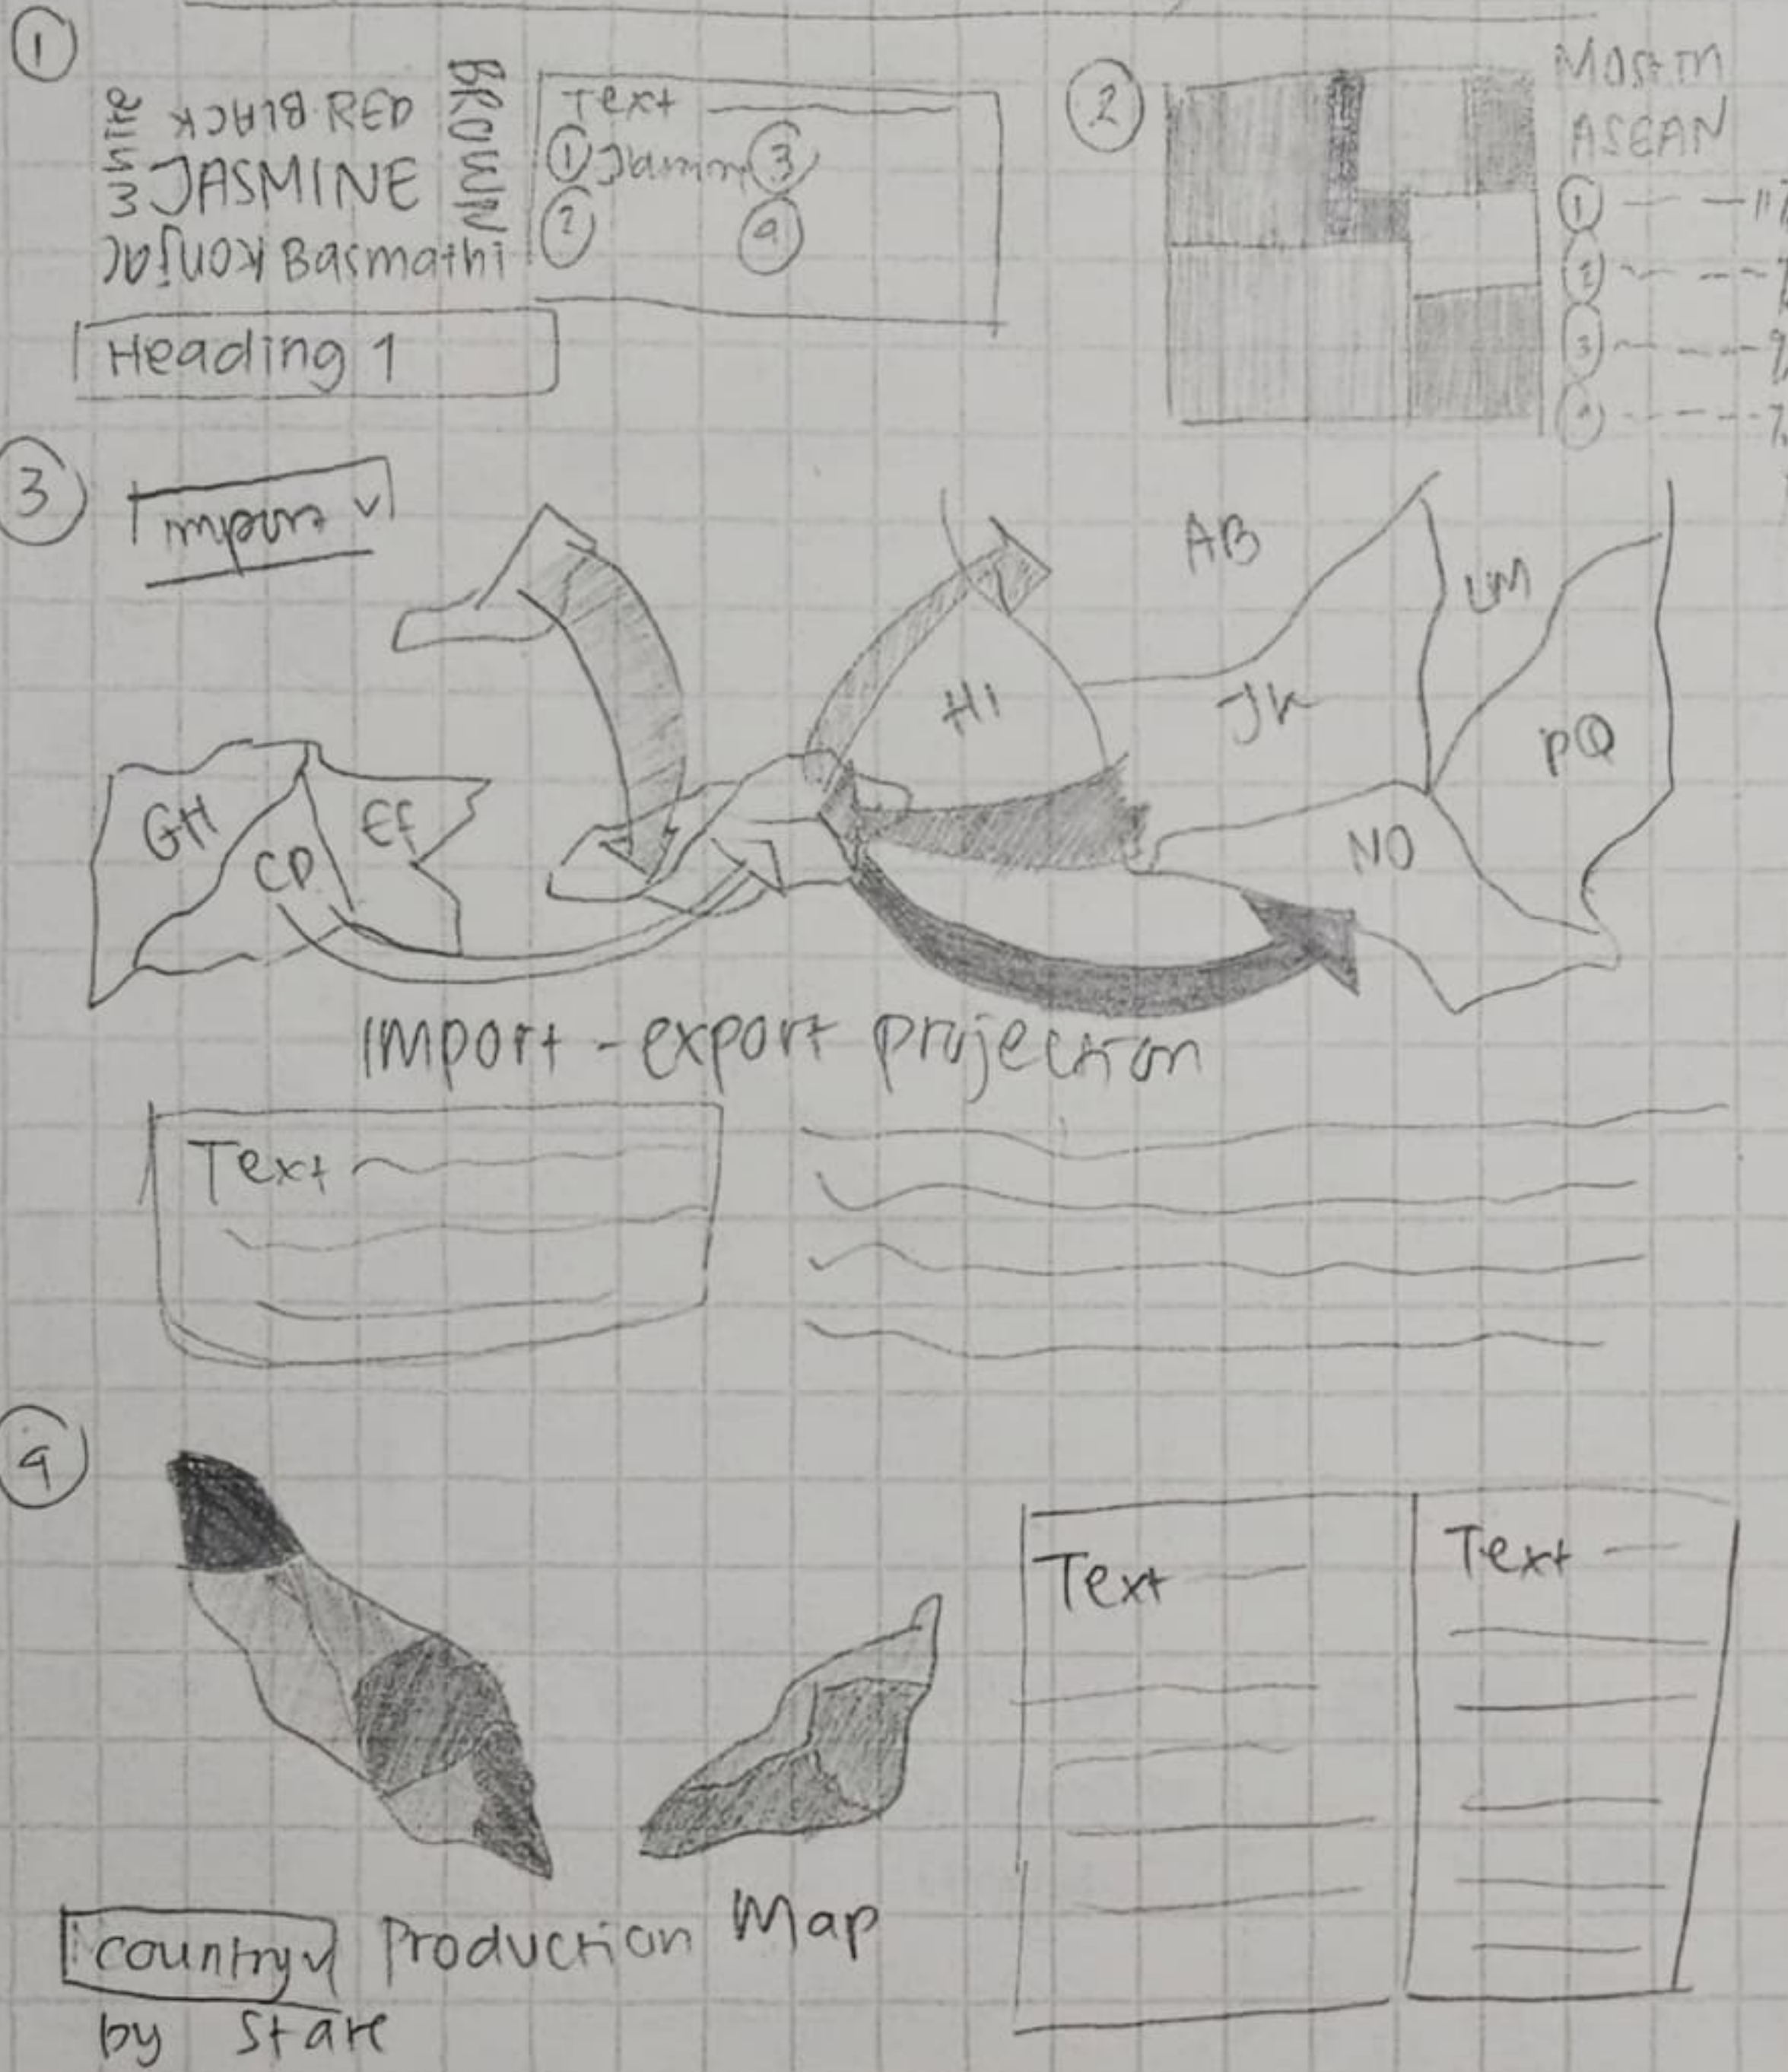 1
white
BLACK RED
BROWN
JASMINE
Konjac Basmathi
Text
1 Jasmin 3
2 4
Heading 1
2
Most in
ASEAN
1
2
3
4
3
Import v
AB
LM
HI
JK
PQ
GH
CD
EF
NO
Import - export projection
Text
4
Text
Text
country v Production Map
by State